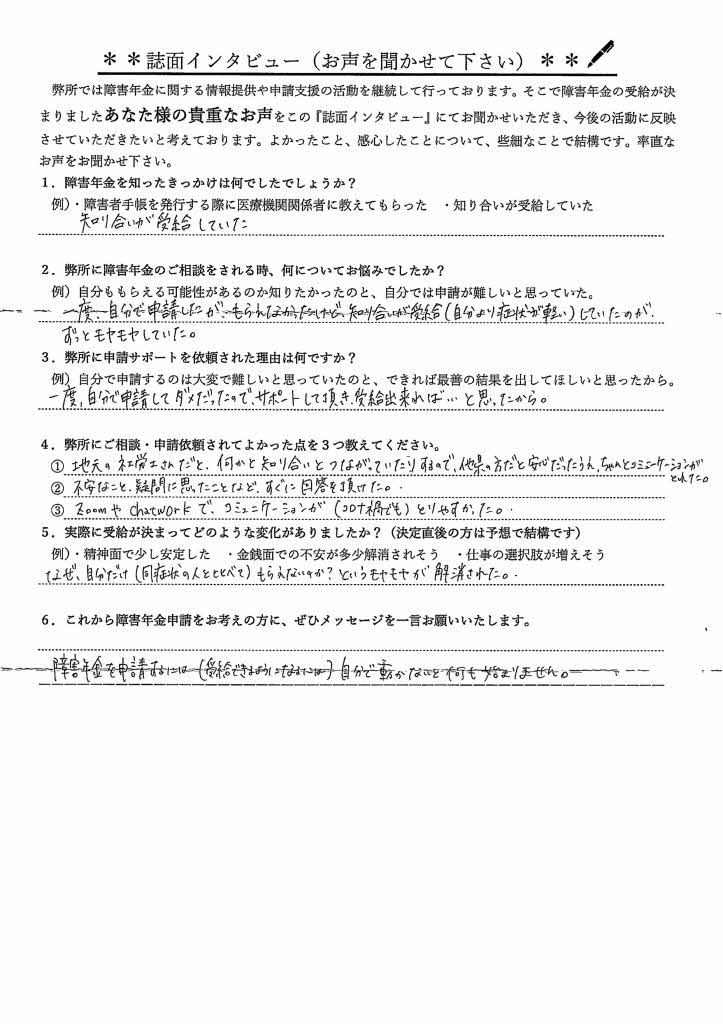 ＊＊誌面インタビュー（お声を聞かせて下さい）＊＊
弊所では障害年金に関する情報提供や申請支援の活動を継続して行っております。そこで障害年金の受給が決
まりましたあなた様の貴重なお声をこの『誌面インタビュー』にてお聞かせいただき、今後の活動に反映
させていただきたいと考えております。よかったこと、感心したことについて、些細なことで結構です。率直な
お声をお聞かせ下さい。
１．障害年金を知ったきっかけは何でしたでしょうか？
例）・障害者手帳を発行する際に医療機関関係者に教えてもらった　・知り合いが受給していた
知り合いが受給していた
２．弊所に障害年金のご相談をされる時、何についてお悩みでしたか？
例）自分ももらえる可能性があるのか知りたかったのと、自分では申請が難しいと思っていた。
一度、自分で申請したが、もらえなかったけど、知り合いが受給(自分より症状が軽い)していたのが、
ずっとモヤモヤしていた。
３．弊所に申請サポートを依頼された理由は何ですか？
例）自分で申請するのは大変で難しいと思っていたのと、できれば最善の結果を出してほしいと思ったから。
一度、自分で申請してダメだったので、サポートして頂き、受給出来れば…と思ったから。
４．弊所にご相談・申請依頼されてよかった点を３つ教えてください。
① 地元の社労士さんだと、何かと知り合いとつながっていたりするので、他県の方だと安心だったうえ、ちゃんとコミュニケーションが
とれた。
② 不安なこと、疑問に思ったことなど、すぐに回答を頂けた。
③ Zoomや chatworkで、コミュニケーションが (コロナ禍でも) とりやすかった。
５．実際に受給が決まってどのような変化がありましたか？（決定直後の方は予想で結構です）
例）・精神面で少し安定した　・金銭面での不安が多少解消されそう　・仕事の選択肢が増えそう
なぜ、自分だけ (同症状の人と比べて) もらえないのか？というモヤモヤが解消された。
６．これから障害年金申請をお考えの方に、ぜひメッセージを一言お願いいたします。
障害年金を申請するには (受給できるようになるには) 自分で動かないと何も始まりません。